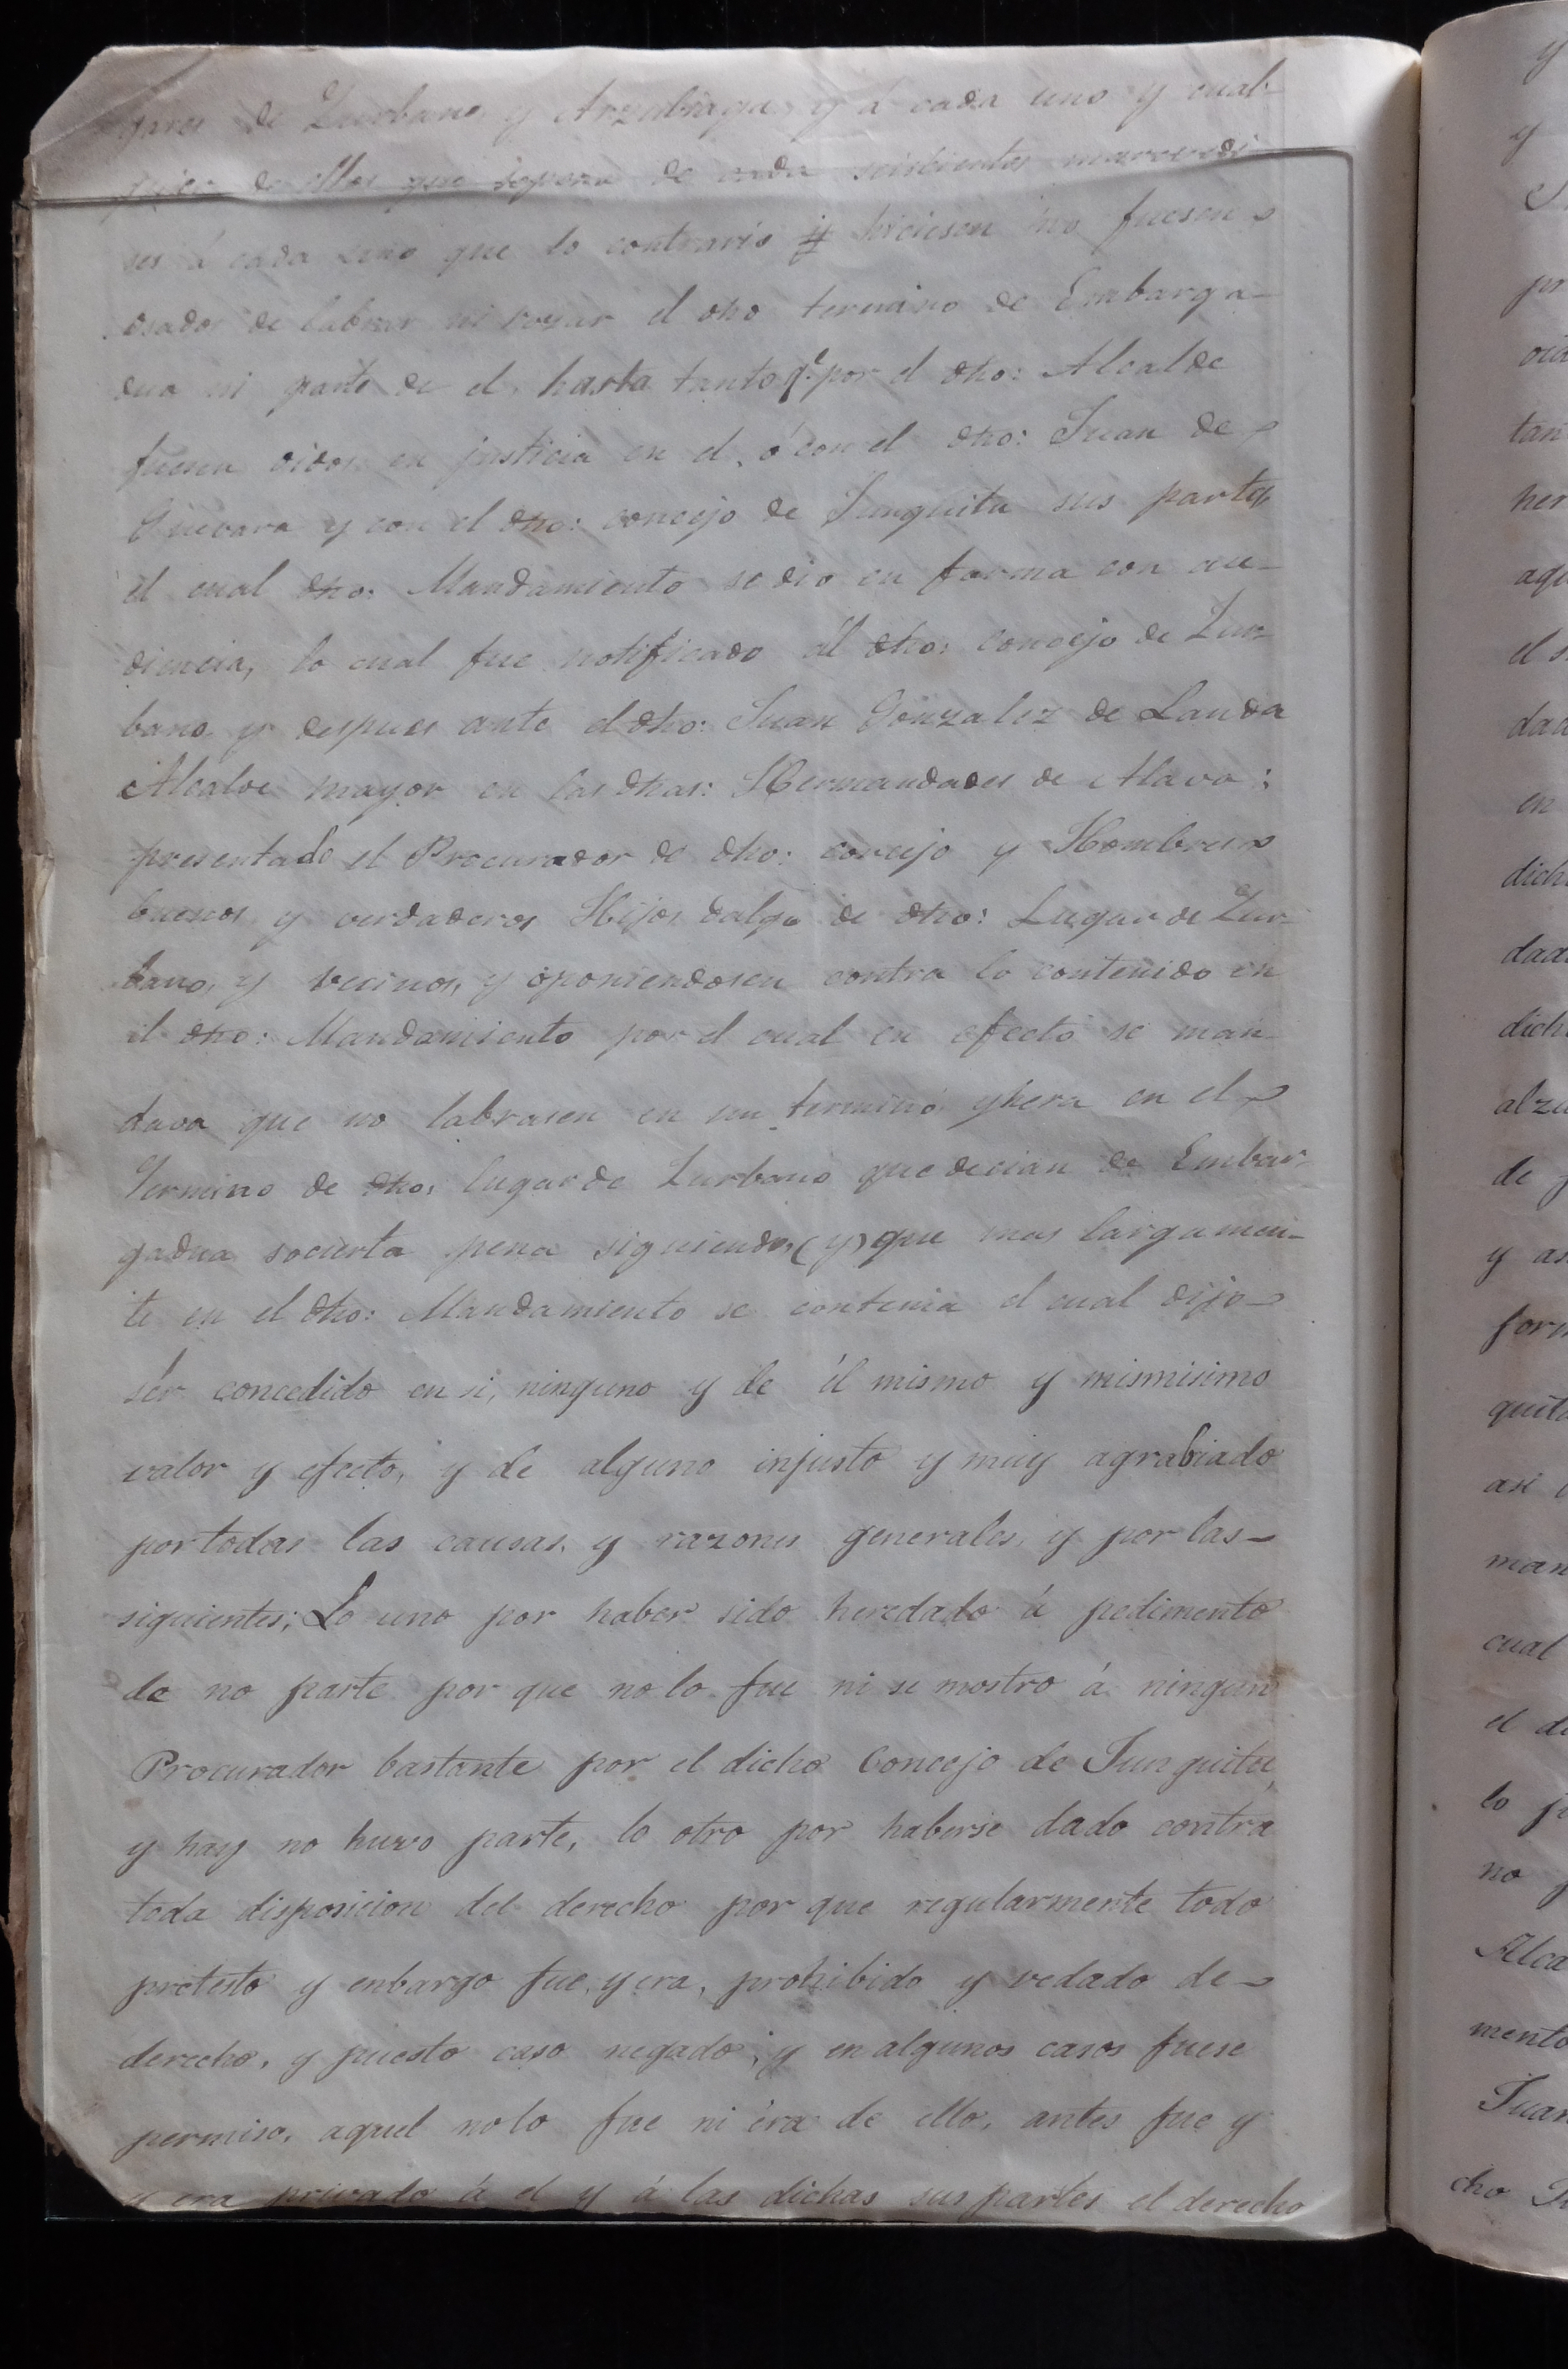 gares de Zurbano, y Arzubiaga, y á cada uno y cual-
de ellos que sopena de cada seiscientos maravedi
ses á cada uno que lo contrario hiciesen no fuesen
osados de labrar ni rozar el dho termino de Embarga-
dua ni parte de el, hasta tanto q.e por el dho: Alcalde
fuesen oidos en justicia en el, ó con el dho: Juan de
Guevara y con el dho: concejo de Junguitu sus partes,
el cual dho: Mandamiento se dio en forma con au-
diencia, lo cual fue notificado al dho: concejo de Zur-
bano y despues ante el dho: Juan Gonzalez de Landa
Alcalde mayor en las dhas: Hermandades de Alava:
presentado el Procurador de dho: concejo y Hombres
buenos y verdaderos Hijos dalgo de dho: Lugar de Zur-
bano, y vecinos, y oponiendosen contra lo contenido en
el dho: Mandamiento por el cual en efecto se man-
dava que no labrasen en un termino yhera en el
Termino de dho: lugar de Zurbano que decian de Embar-
gadua socierta pena siguiendo, (y) que mas largamen-
te en el dho: Mandamiento se contenia el cual dijo
sér concedido en si, ninguno y de él mismo y mismisimo
valor y efecto, y de alguno injusto y muy agrabiado
por todas las causas, y razones generales, y por las
siguientes; Lo uno por haber sido heredado á pedimento
de no parte por que no lo fue ni se mostro á ningun
Procurador bastante por el dicho Concejo de Junguitu,
y hay no huvo parte, lo otro por haberse dado contra
toda disposicion del derecho por que regularmente todo
protesto y enbargo fue, y era, prohibido y vedado de
derecho, y puesto caso negado, y en algunos casos fuese
permiso, aquel no lo fue ni éra de ello, antes fue y
y era privado á el y á las dichas sus partes el derecho